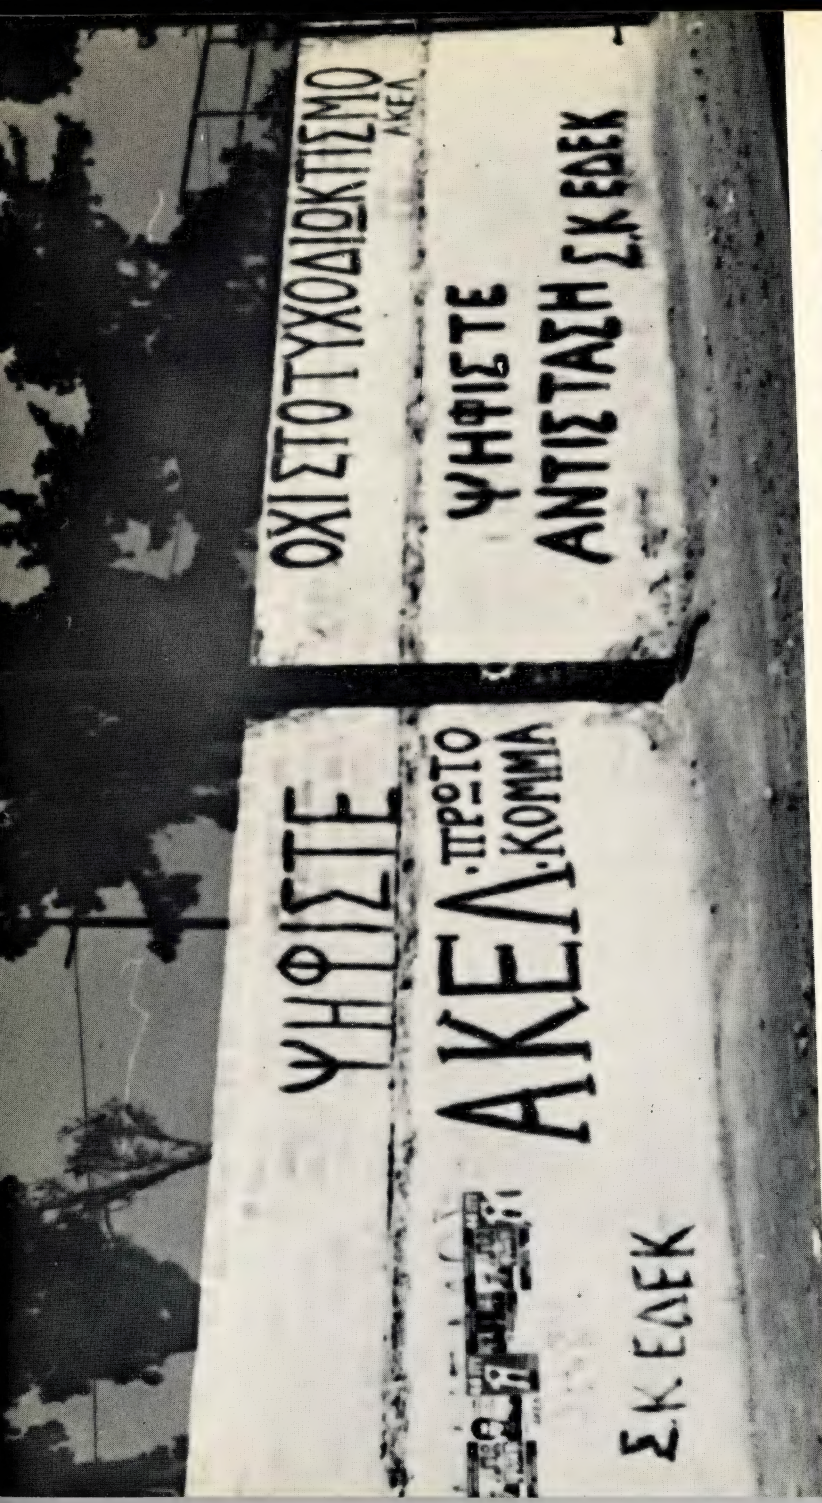 ΨΗΦΙΣΤΕ
ΑΚΕΛ
·ΠΡΩΤΟ
·ΚΟΜΜΑ
Σ.Κ. ΕΔΕΚ
ΟΧΙ ΣΤΟ ΤΥΧΟΔΙΩΚΤΙΣΜΟ
ΑΚΕΛ
ΨΗΦΙΣΤΕ
ΑΝΤΙΣΤΑΣΗ
Σ.Κ ΕΔΕΚ